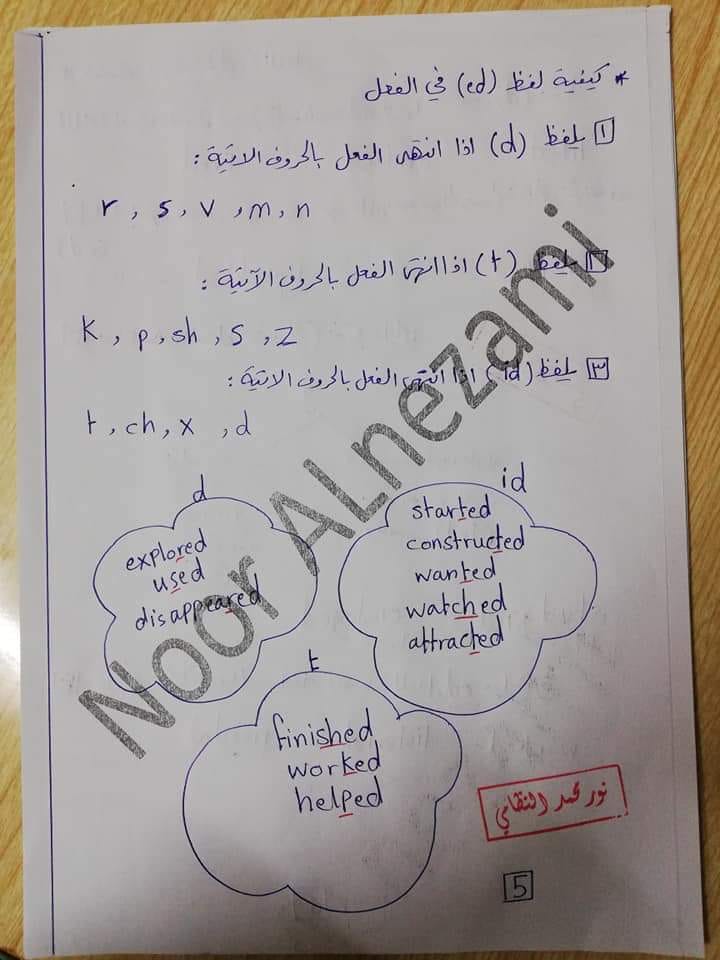 * كيفية لفظ (ed) في الفعل
١ يلفظ (d) اذا انتهى الفعل بالحروف الاتية :
r , s , v , m , n
٢ يلفظ (t) اذا انتهى الفعل بالحروف الآتية :
K , p , sh , s , z
٣ يلفظ (id) اذا انتهى الفعل بالحروف الاتية :
t , ch , x , d
d
explored
used
disappeared
id
started
constructed
wanted
watched
attracted
t
finished
worked
helped
Noor ALnezami
نور محمد النظامي
5